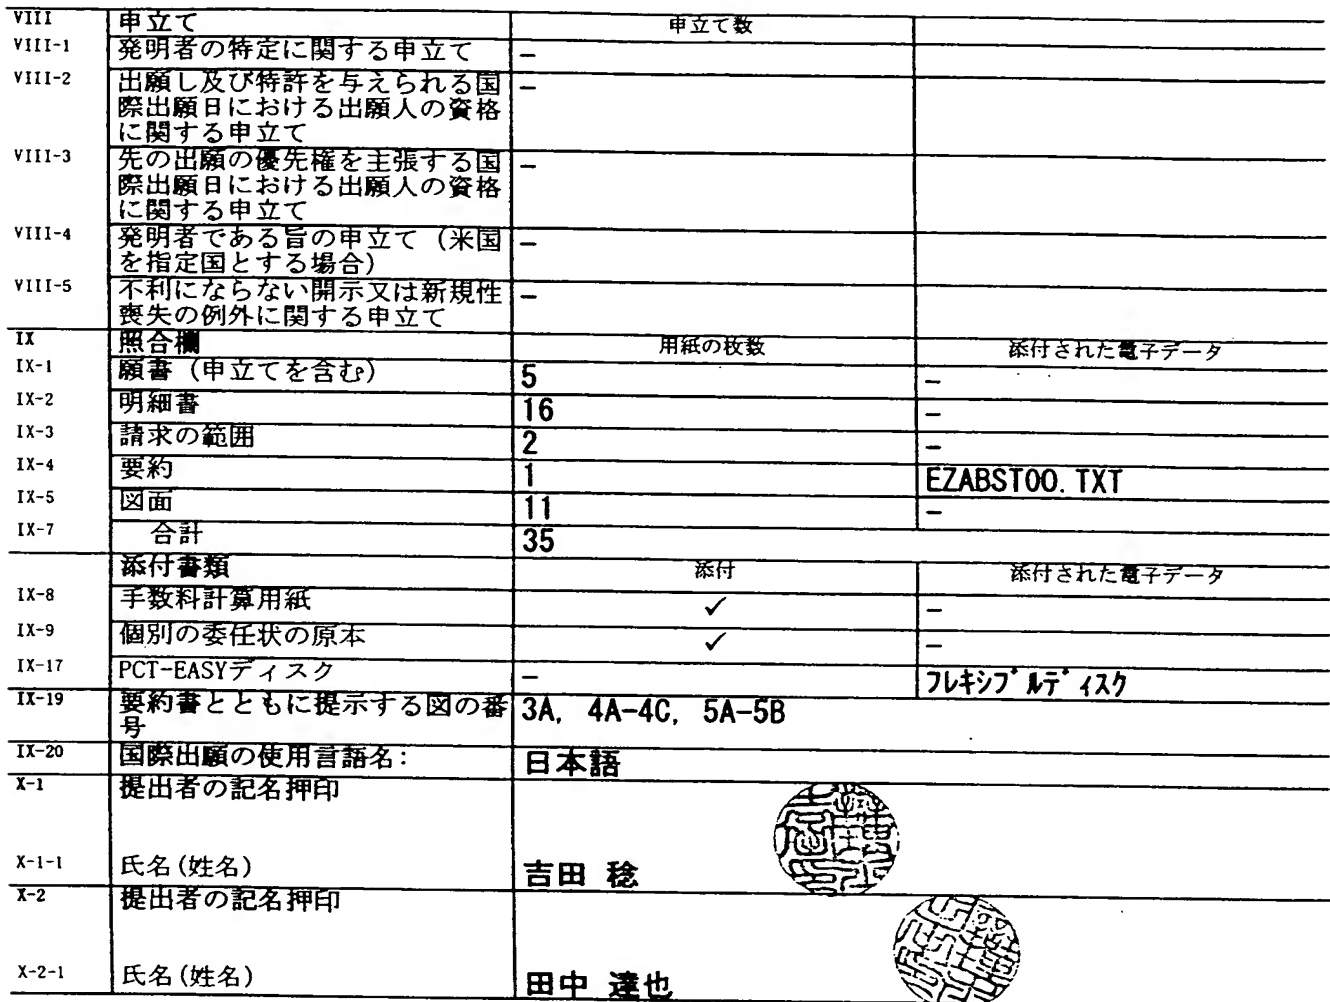 VIII 申立て 申立て数
VIII-1 発明者の特定に関する申立て –
VIII-2 出願し及び特許を与えられる国 –
際出願日における出願人の資格
に関する申立て
VIII-3 先の出願の優先権を主張する国 –
際出願日における出願人の資格
に関する申立て
VIII-4 発明者である旨の申立て（米国 –
を指定国とする場合）
VIII-5 不利にならない開示又は新規性 –
喪失の例外に関する申立て
IX 照合欄 用紙の枚数 添付された電子データ
IX-1 願書（申立てを含む） 5 –
IX-2 明細書 16 –
IX-3 請求の範囲 2 –
IX-4 要約 1 EZABST00.TXT
IX-5 図面 11 –
IX-7 合計 35
添付書類 添付 添付された電子データ
IX-8 手数料計算用紙 ✓ –
IX-9 個別の委任状の原本 ✓ –
IX-17 PCT-EASYディスク – フレキシブルディスク
IX-19 要約書とともに提示する図の番 3A, 4A-4C, 5A-5B
号
IX-20 国際出願の使用言語名: 日本語
X-1 提出者の記名押印
X-1-1 氏名(姓名) 吉田 稔
X-2 提出者の記名押印
X-2-1 氏名(姓名) 田中 達也